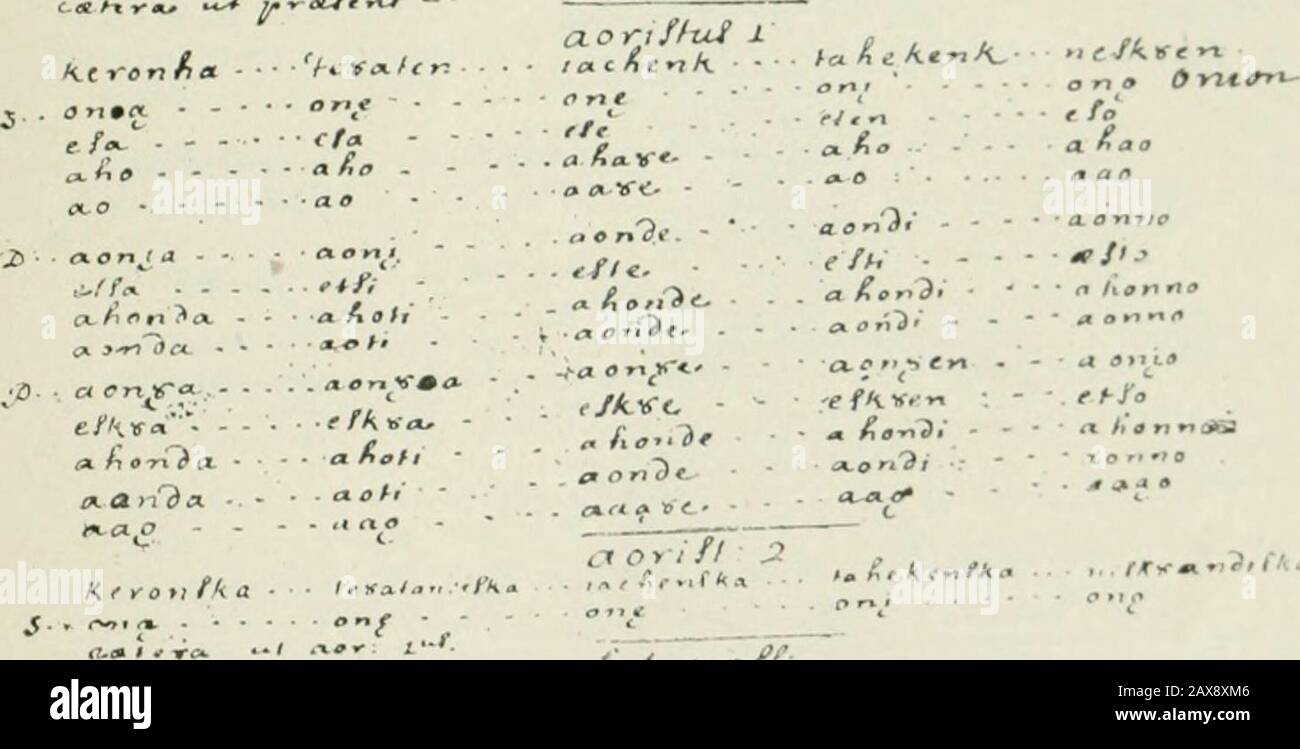 cætera ut præsens
aoristus 1
keronha teȣaten iachenk tahekenk neskȣen
S onǫa onę onę onį onǫ onion
esa esa ese esen eso
aho aho ahaȣe aho ahao
ao ao aaȣe ao aao
D aonįa aonį aonde aondi aonno
etsa etsi este esti esto
ahonda ahoti ahonde ahondi ahonno
aonda aoti aonde aondi aonno
P aonȣa aonȣa aonȣe aonȣen aonįo
eskȣa eskȣa eskȣe eskȣen etso
ahonda ahoti ahonde ahondi ahonno
aanda aoti aonde aondi ionno
aaǫ aaǫ aaąȣe aaǫ aaąo
aorist: 2
keronska iachenska tahekenska
S onįa onę onę onį onǫ
cætera ut aor: 1us.
alamy
Image ID: 2AX8XM6
www.alamy.com